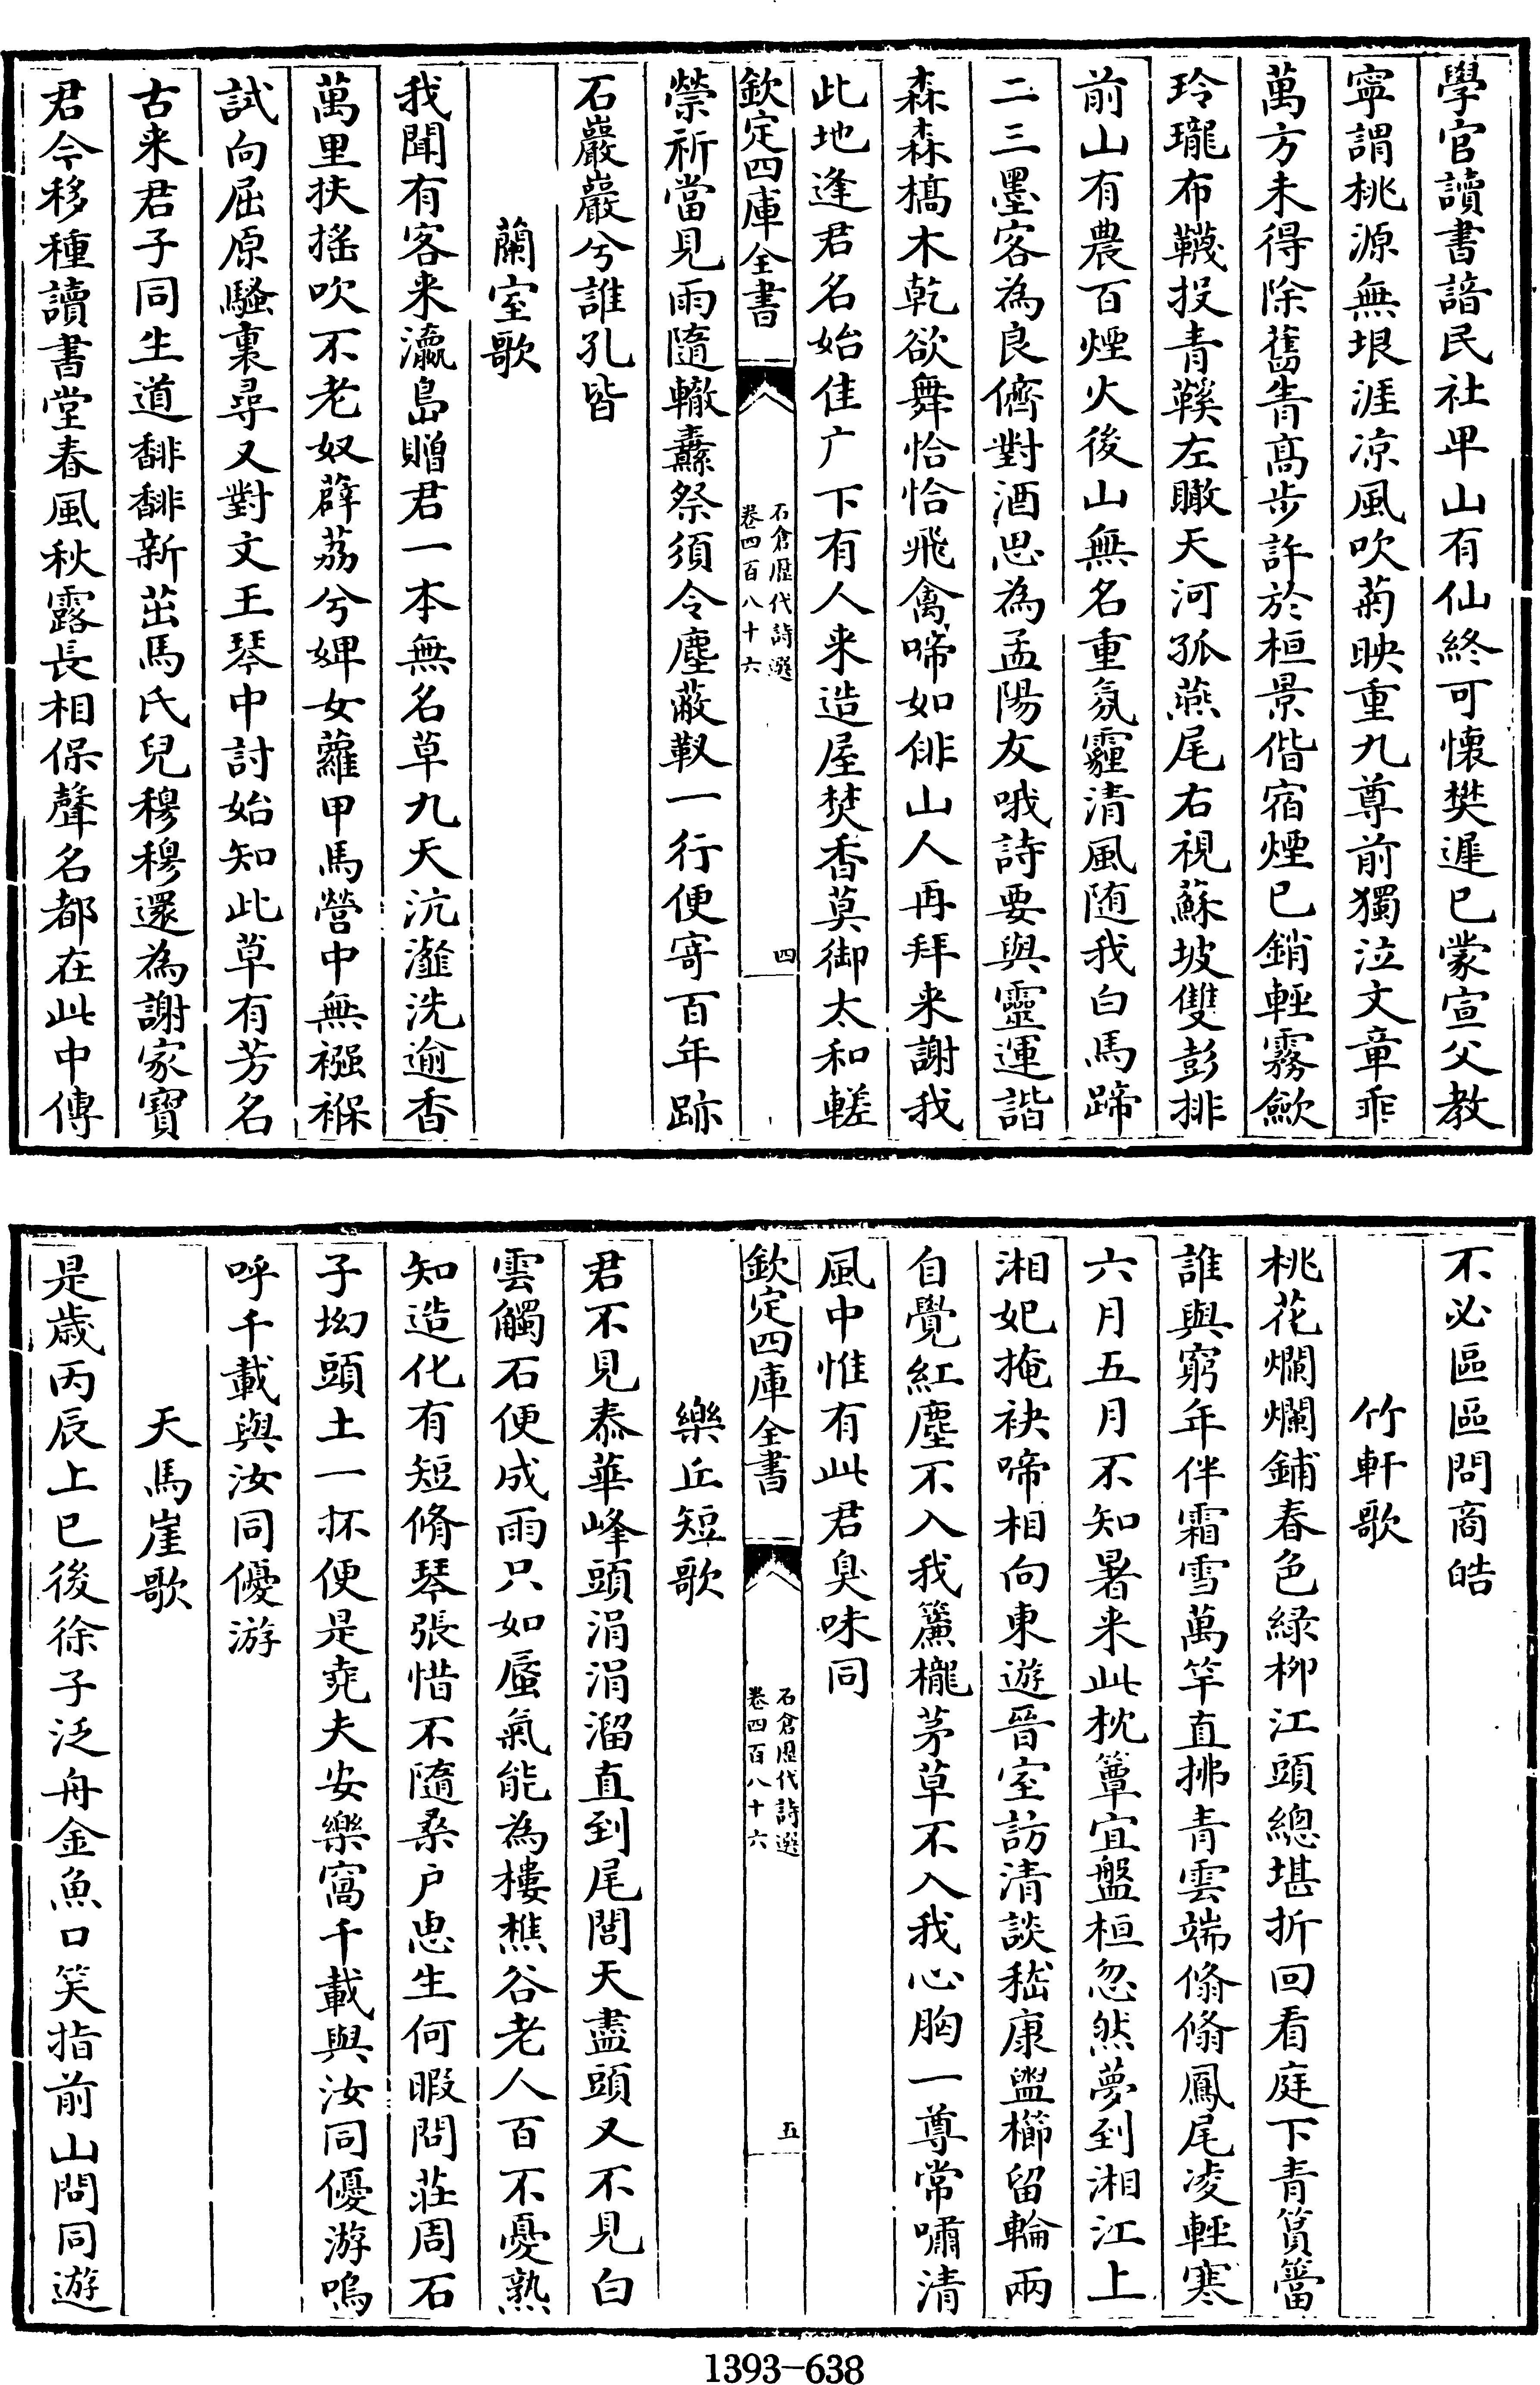 學官讀書諳民社畢山有仙終可懷樊遲已蒙宣父教
寧謂桃源無垠涯凉風吹菊映重九尊前獨泣文章乖
萬方未得除舊眚髙步許於桓景偕宿煙已銷輕霧歛
玲瓏布韈投青鞵左瞰天河孤燕尾右視蘇坡雙彭排
前山有農百煙火後山無名重氛霾清風随我白馬蹄
二三墨客為良儕對酒思為孟陽友哦詩要與靈運諧
森森槁木乾欲舞恰恰飛禽啼如俳山人再拜来謝我
此地逢君名始佳广下有人来造屋焚香莫御太和韑
欽定四庫全書
石倉歴代詩選
卷四百八十六
四
禜祈當見雨隨轍纛祭須令塵蔽靫一行便寄百年跡
石巖巖兮誰孔皆
蘭室歌
我聞有客来瀛島贈君一本無名草九天沆瀣洗逾香
萬里扶搖吹不老奴薜荔兮婢女蘿甲馬營中無襁褓
試向屈原騷裏尋又對文王琴中討始知此草有芳名
古来君子同生道馡馡新茁馬氏兒穆穆還為謝家寳
君今移種讀書堂春風秋露長相保聲名都在此中傳
不必區區問商皓
竹軒歌
桃花爛爛鋪春色緑柳江頭總堪折回看庭下青篔簹
誰與窮年伴霜雪萬竿直拂青雲端翛翛鳳尾凌輕寒
六月五月不知暑来此枕簟宜盤桓忽然夢到湘江上
湘妃掩袂啼相向東遊晉室訪清談嵇康盥櫛留輪兩
自覺紅塵不入我簾櫳茅草不入我心胸一尊常嘯清
風中惟有此君臭味同
欽定四庫全書
石倉歴代詩選
卷四百八十六
五
樂丘短歌
君不見泰華峰頭涓涓溜直到尾閭天盡頭又不見白
雲觸石便成雨只如蜃氣能為樓樵谷老人百不憂熟
知造化有短脩琴張惜不隨桑户患生何暇問莊周石
子坳頭土一抔便是堯夫安樂窩千載與汝同優游嗚
呼千載與汝同優游
天馬崖歌
是歳丙辰上巳後徐子泛舟金魚口笑指前山問同遊
1393-638